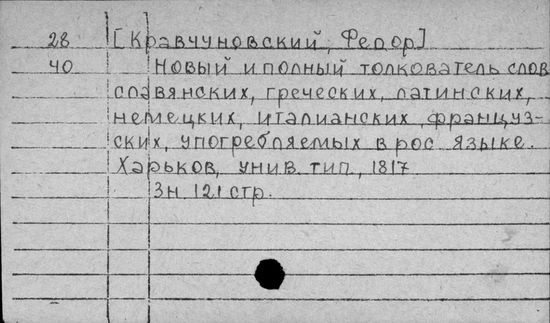 28 [Кравчуновский, Федор]
40 Новый и полный толкователь слов
славянских, греческих, латинских,
немецких, италианских, француз-
ских, употребляемых в рос языке.
Харьков, унив. тип., 1817
3н. 121 стр.